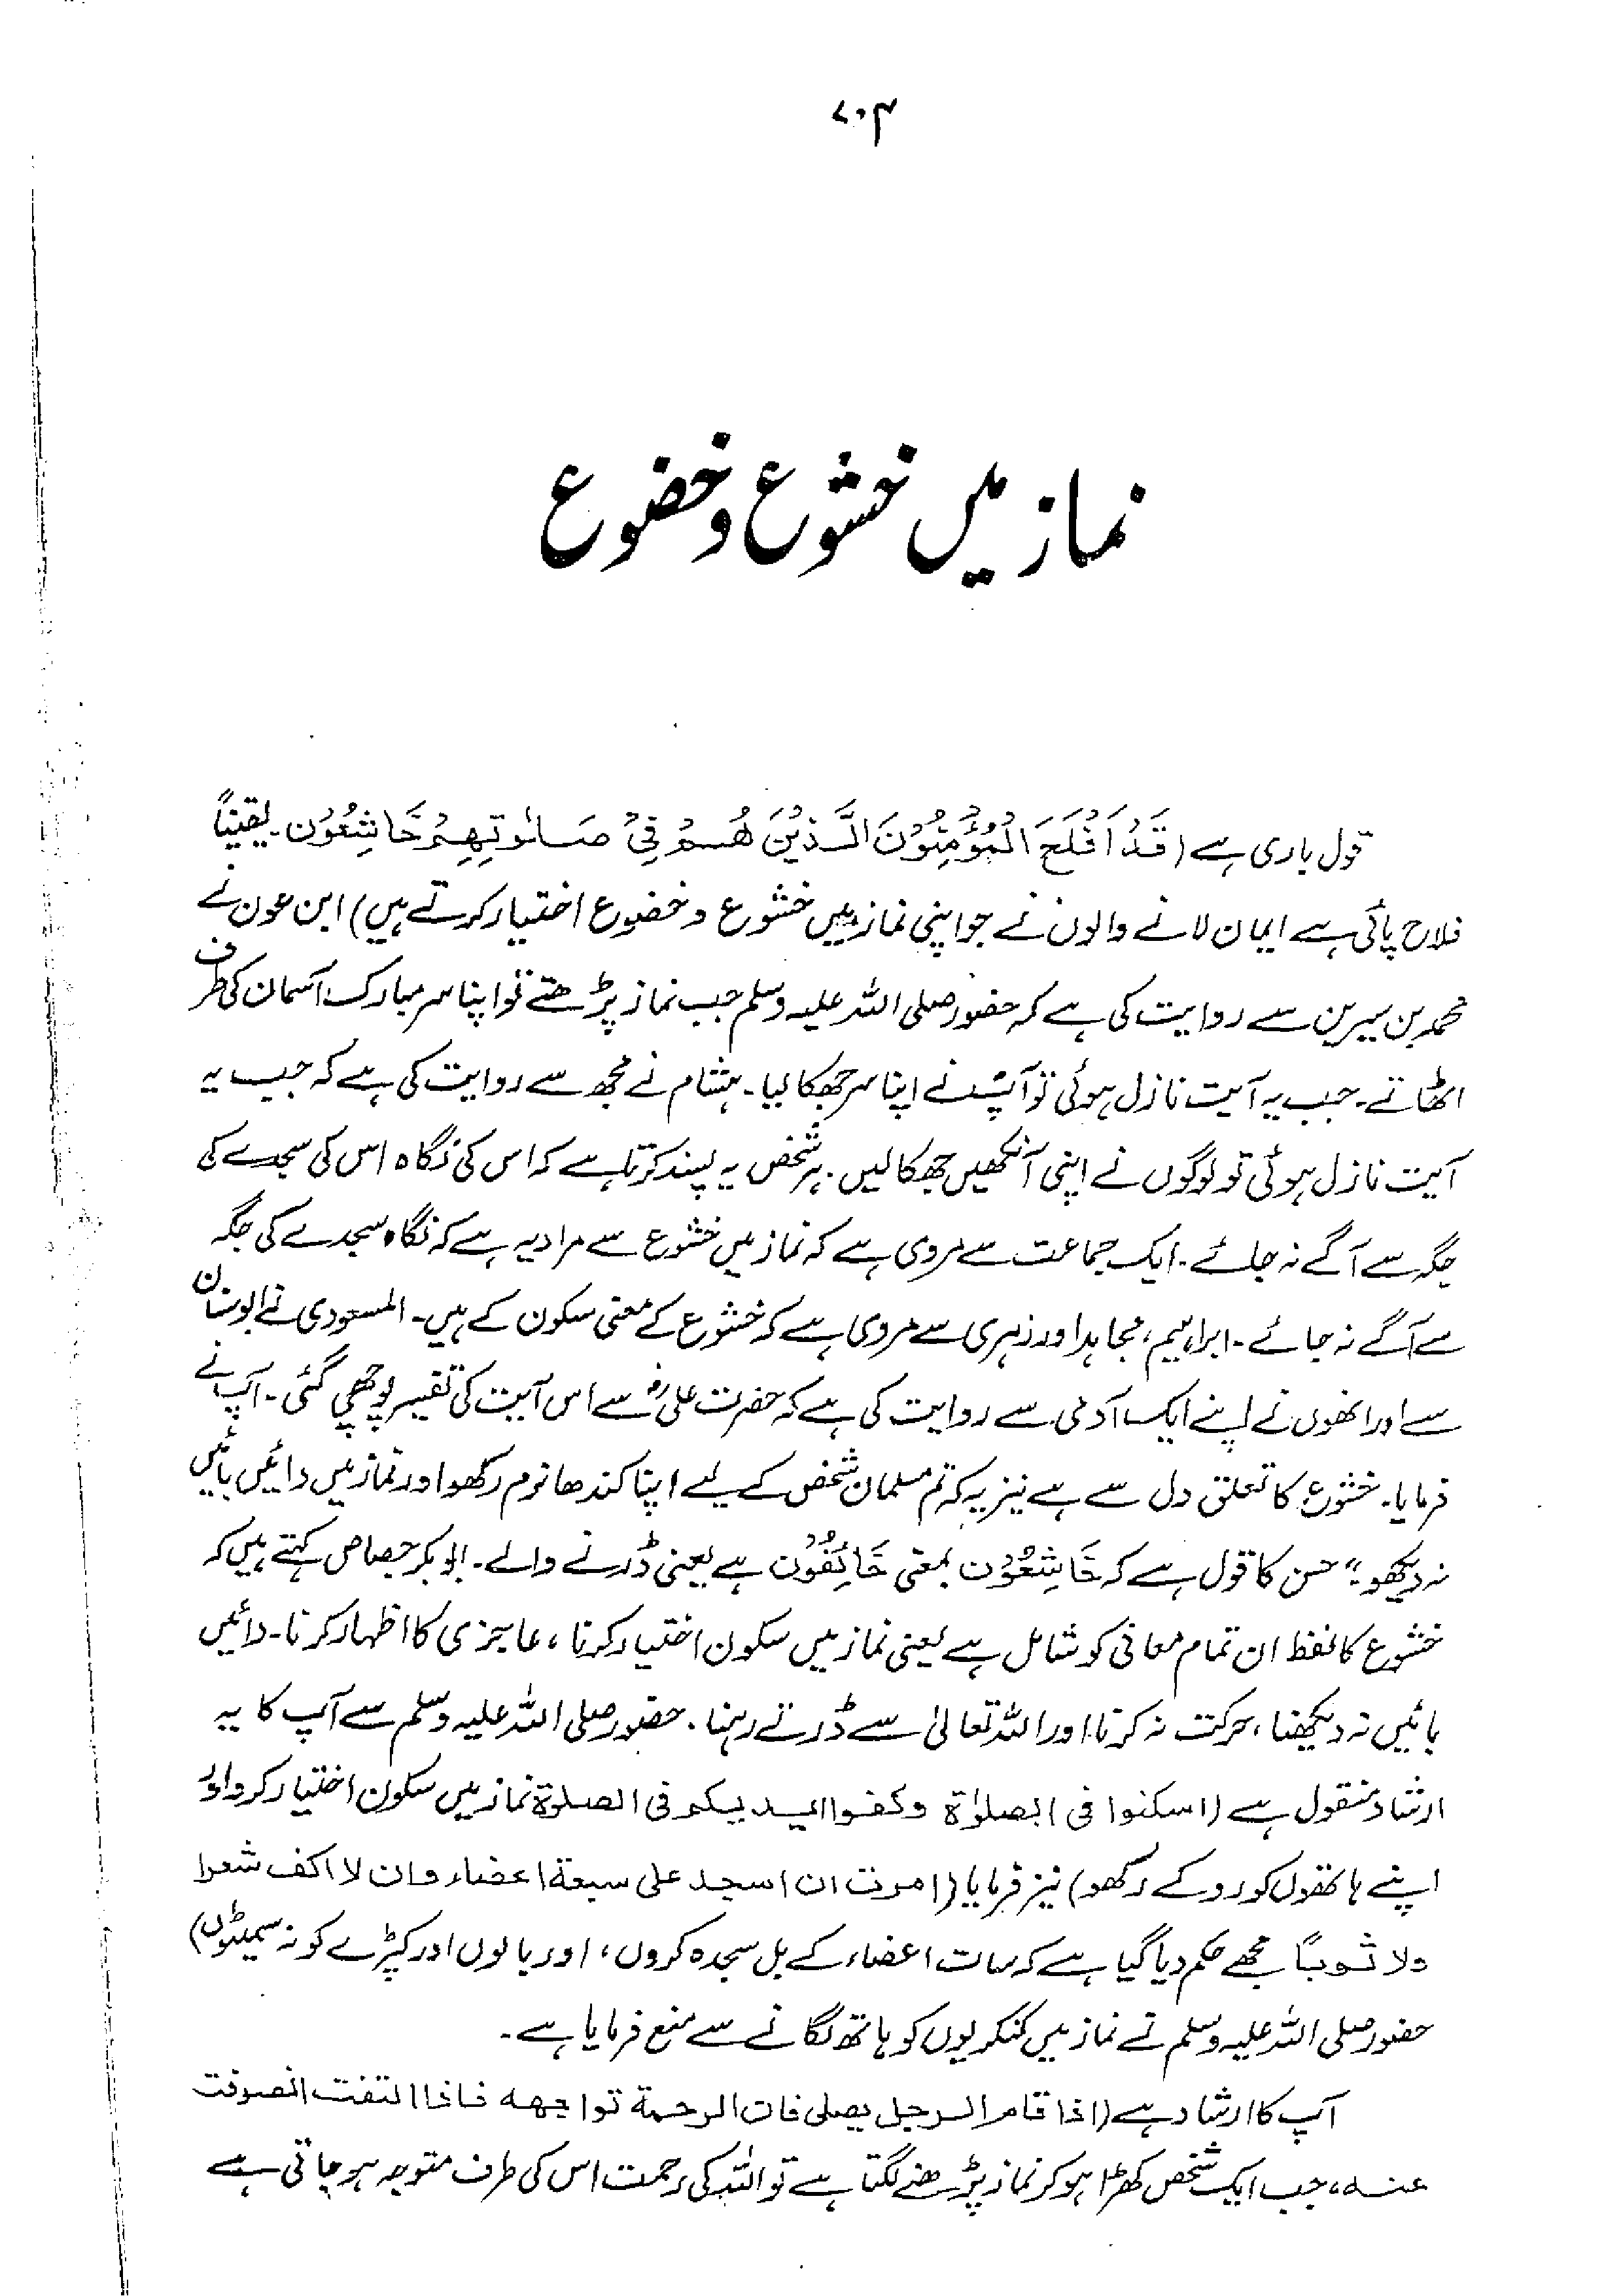 ۷۰۴
نماز میں خشوع و خضوع
قول باری ہے (قَدْ اَفْلَحَ الْمُؤْمِنُوْنَ الَّذِيْنَ هُمْ فِيْ صَلٰوتِهِمْ خَاشِعُوْن۔ یقیناً
فلاح پائی ہے ایمان لانے والوں نے جو اپنی نماز میں خشوع و خضوع اختیار کرتے ہیں) ابن عون نے
محمد بن سیرین سے روایت کی ہے کہ حضور صلی اللہ علیہ وسلم جب نماز پڑھتے تو اپنا سر مبارک آسمان کی طرف
اٹھاتے۔ جب یہ آیت نازل ہوئی تو آپؐ نے اپنا سر جھکا لیا۔ ہشام نے مجھ سے روایت کی ہے کہ جب یہ
آیت نازل ہوئی تو لوگوں نے اپنی آنکھیں جھکا لیں۔ ہر شخص یہ پسند کرتا ہے کہ اس کی نگاہ اس کی سجدے کی
جگہ سے آگے نہ جائے۔ ایک جماعت سے مروی ہے کہ نماز میں خشوع سے مراد یہ ہے کہ نگاہ سجدے کی جگہ
سے آگے نہ جائے۔ ابراہیم، مجاہد اور زہری سے مروی ہے کہ خشوع کے معنی سکون کے ہیں۔ المسعودی نے ابوسنان
سے اور انھوں نے اپنے ایک آدمی سے روایت کی ہے کہ حضرت علیؓ سے اس آیت کی تفسیر پوچھی گئی۔ آپ نے
فرمایا۔ خشوع کا تعلق دل سے ہے نیز یہ کہ تم مسلمان شخص کے لیے اپنا کندھا نرم رکھو اور نماز میں دائیں بائیں
نہ دیکھو"۔ حسن کا قول ہے کہ خَاشِعُوْن بمعنی خَائِفُوْن ہے یعنی ڈرنے والے۔ ابوبکر جصاص کہتے ہیں کہ
خشوع کا لفظ ان تمام معانی کو شامل ہے یعنی نماز میں سکون اختیار کرنا، عاجزی کا اظہار کرنا۔ دائیں
بائیں نہ دیکھنا، حرکت نہ کرنا اور اللہ تعالیٰ سے ڈرتے رہنا۔ حضور صلی اللہ علیہ وسلم سے آپ کا یہ
ارشاد منقول ہے (اسکنوا فی الصلوٰة وکفوا ایدیکم فی الصلوة نماز میں سکون اختیار کرو اور
اپنے ہاتھوں کو روکے رکھو) نیز فرمایا (امرت ان اسجد علی سبعة اعضاء وان لا اکف شعرا
ولا ثوبًا مجھے حکم دیا گیا ہے کہ سات اعضاء کے بل سجدہ کروں، اور بالوں اور کپڑے کو نہ سمیٹوں)
حضور صلی اللہ علیہ وسلم نے نماز میں کنکریوں کو ہاتھ لگانے سے منع فرمایا ہے۔
آپ کا ارشاد ہے (اذا قام الرجل یصلی فان الرحمة تواجهه فاذا التفت انصرفت
عنه، جب ایک شخص کھڑا ہو کر نماز پڑھنے لگتا ہے تو اللہ کی رحمت اس کی طرف متوجہ ہو جاتی ہے